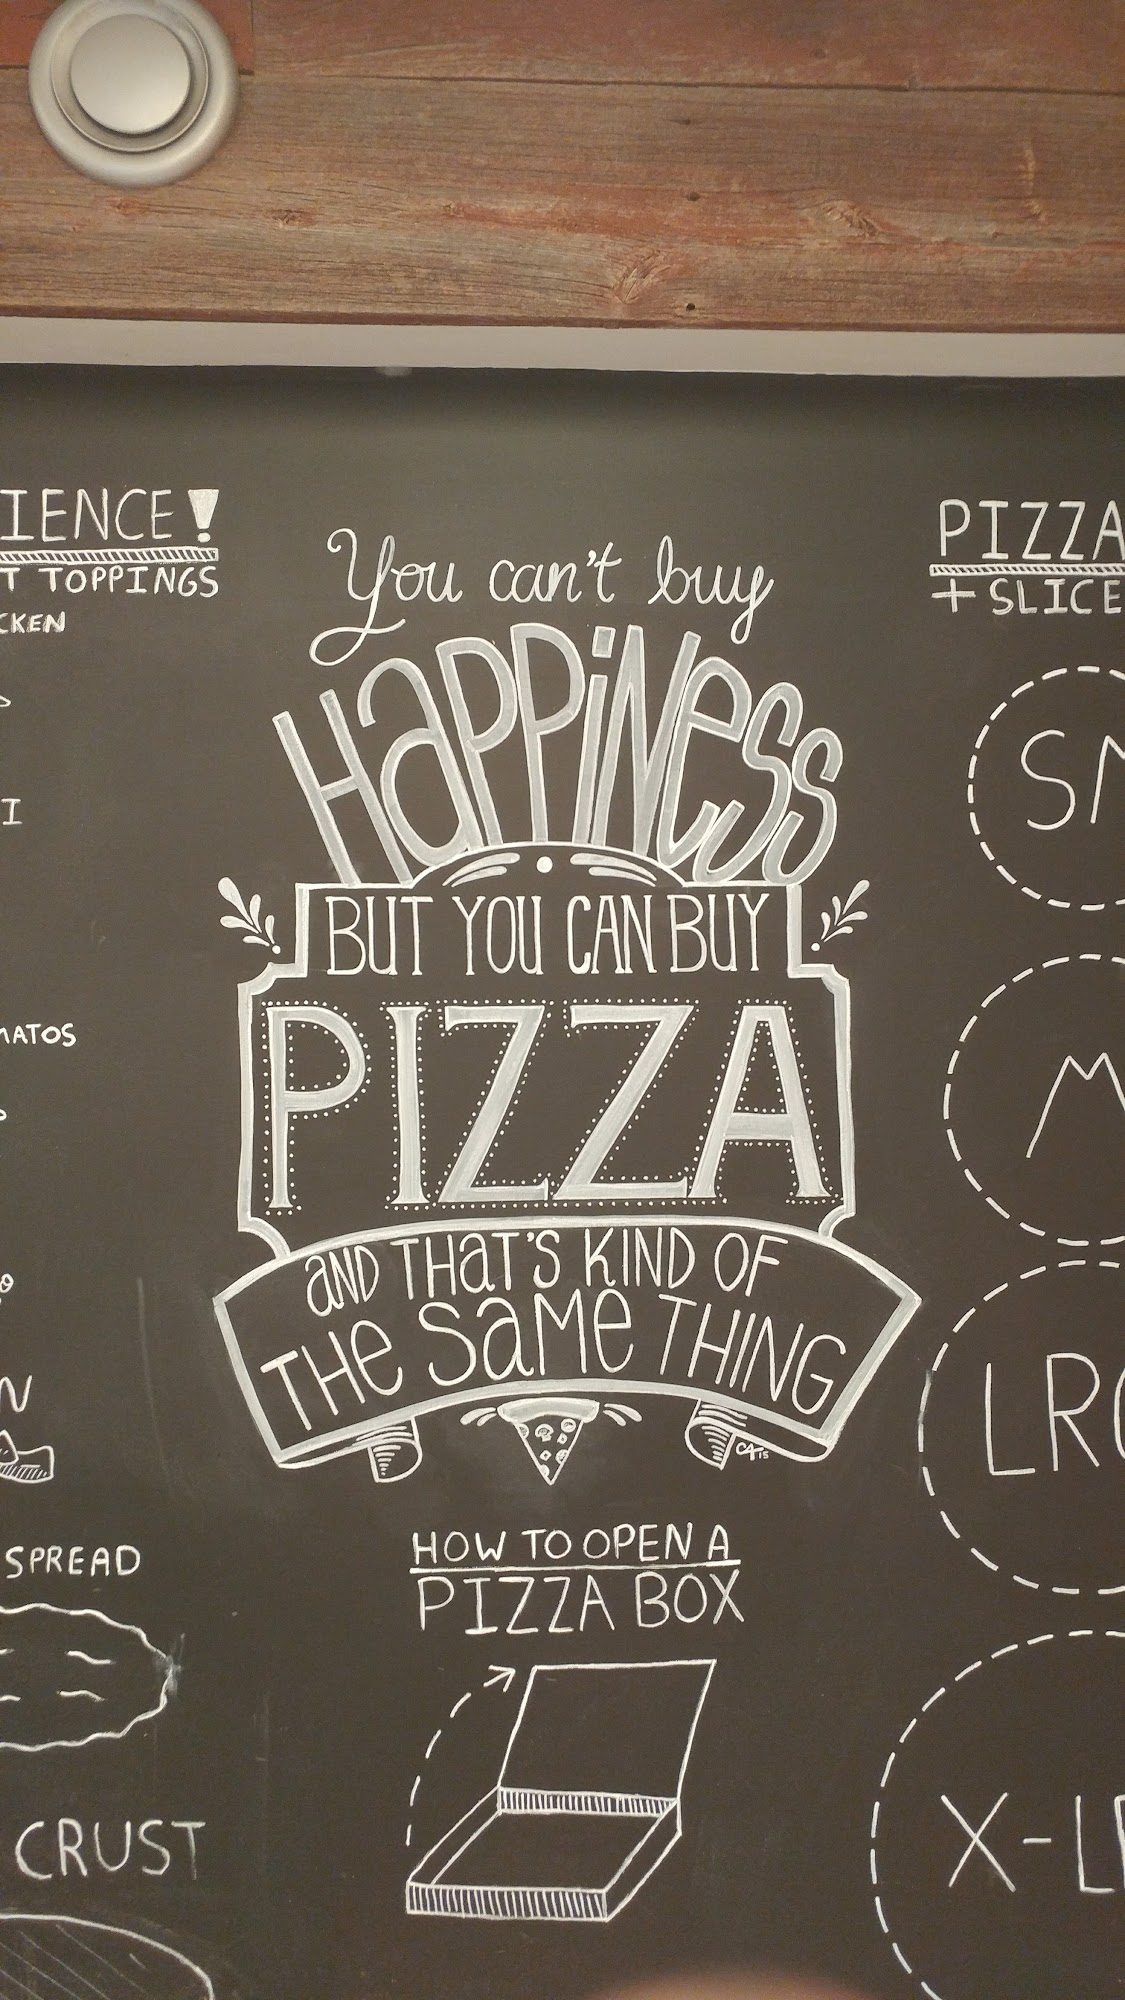 IENCE!
T TOPPINGS
CKEN
I
MATOS
N
SPREAD
CRUST
You can't buy
HaPPiNess
BUT YOU CAN BUY
PIZZA
aND THaT'S KIND OF
THe SaMe THING
HOW TO OPEN A
PIZZA BOX
PIZZA
+ SLICE
SM
M
LRG
X-LR